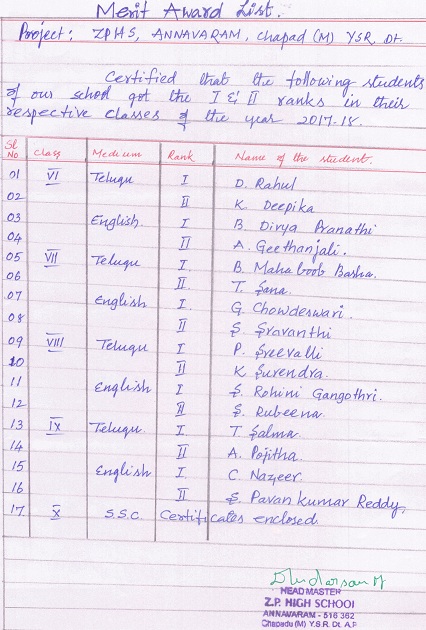 Merit Award List.
Project: ZPHS, ANNAVARAM, Chapad (M) YSR. Dt.
Certified that the following students
of our school got the I & II ranks in their
respective classes of the year 2017-18.
Sl No Class Medium Rank Name of the student.
01 VI Telugu I D. Rahul
02 II K. Deepika
03 English I B. Divya Pranathi
04 II A. Geethanjali.
05 VII Telugu I B. Mahaboob Basha.
06 II T. Sana
07 English I G. Chowdeswari.
08 II S. Sravanthi
09 VIII Telugu I P. Sreevalli
10 II K. Surendra.
11 English I S. Rohini Gangothri.
12 II S. Rubeena
13 IX Telugu I T. Salma
14 II A. Pojitha
15 English I C. Nazeer.
16 II S. Pavan Kumar Reddy,
17 X S.S.C. Certificates enclosed
HEAD MASTER
Z.P. HIGH SCHOOL
ANNAVARAM - 516 362
Chapadu (M) Y.S.R. Dt. A.P